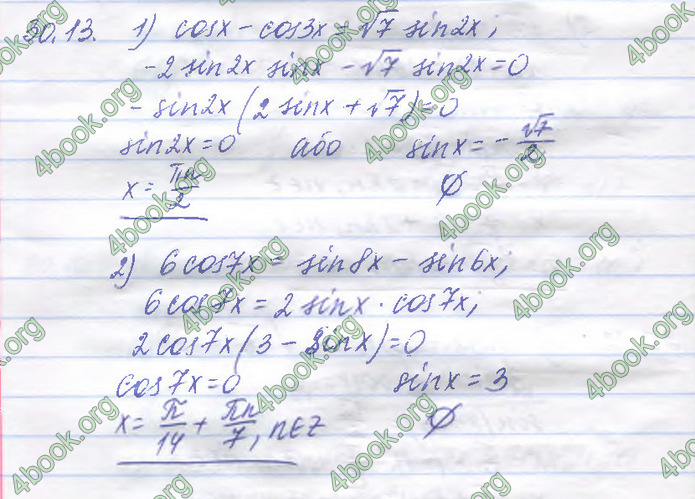 30.13. 1) cosx - cos3x = √7 sin2x;
-2 sin2x sinx - √7 sin2x = 0
- sin2x (2 sinx + √7) = 0
sin2x = 0 або sinx = - √7/2
x = πn/2 ∅
2) 6cos7x = sin8x - sin6x;
6cos7x = 2 sinx · cos7x;
2cos7x (3 - sinx) = 0
cos7x = 0 sinx = 3
x = π/14 + πn/7, n∈Z ∅
4book.org